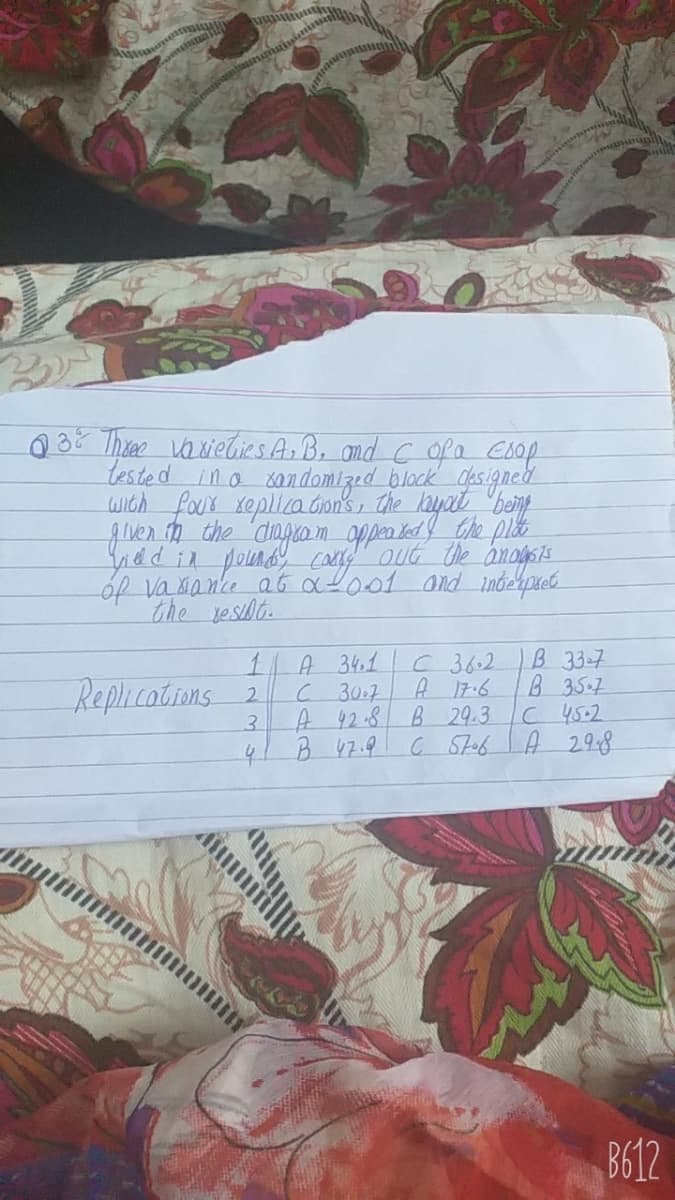 Q3: Three varieties A, B, and C of a crop
tested in a randomized block designed
with four replication's, the layout being
given in the diagram appeared the plot
yield in pounds, carry out the anaysis
of variance at α=0.01 and interpret
the reslt.
1 A 34.1 C 36.2 B 33.7
Replications 2 C 30.7 A 17.6 B 35.7
3 A 42.8 B 29.3 C 45.2
4 B 47.9 C 57.6 A 29.8
B612